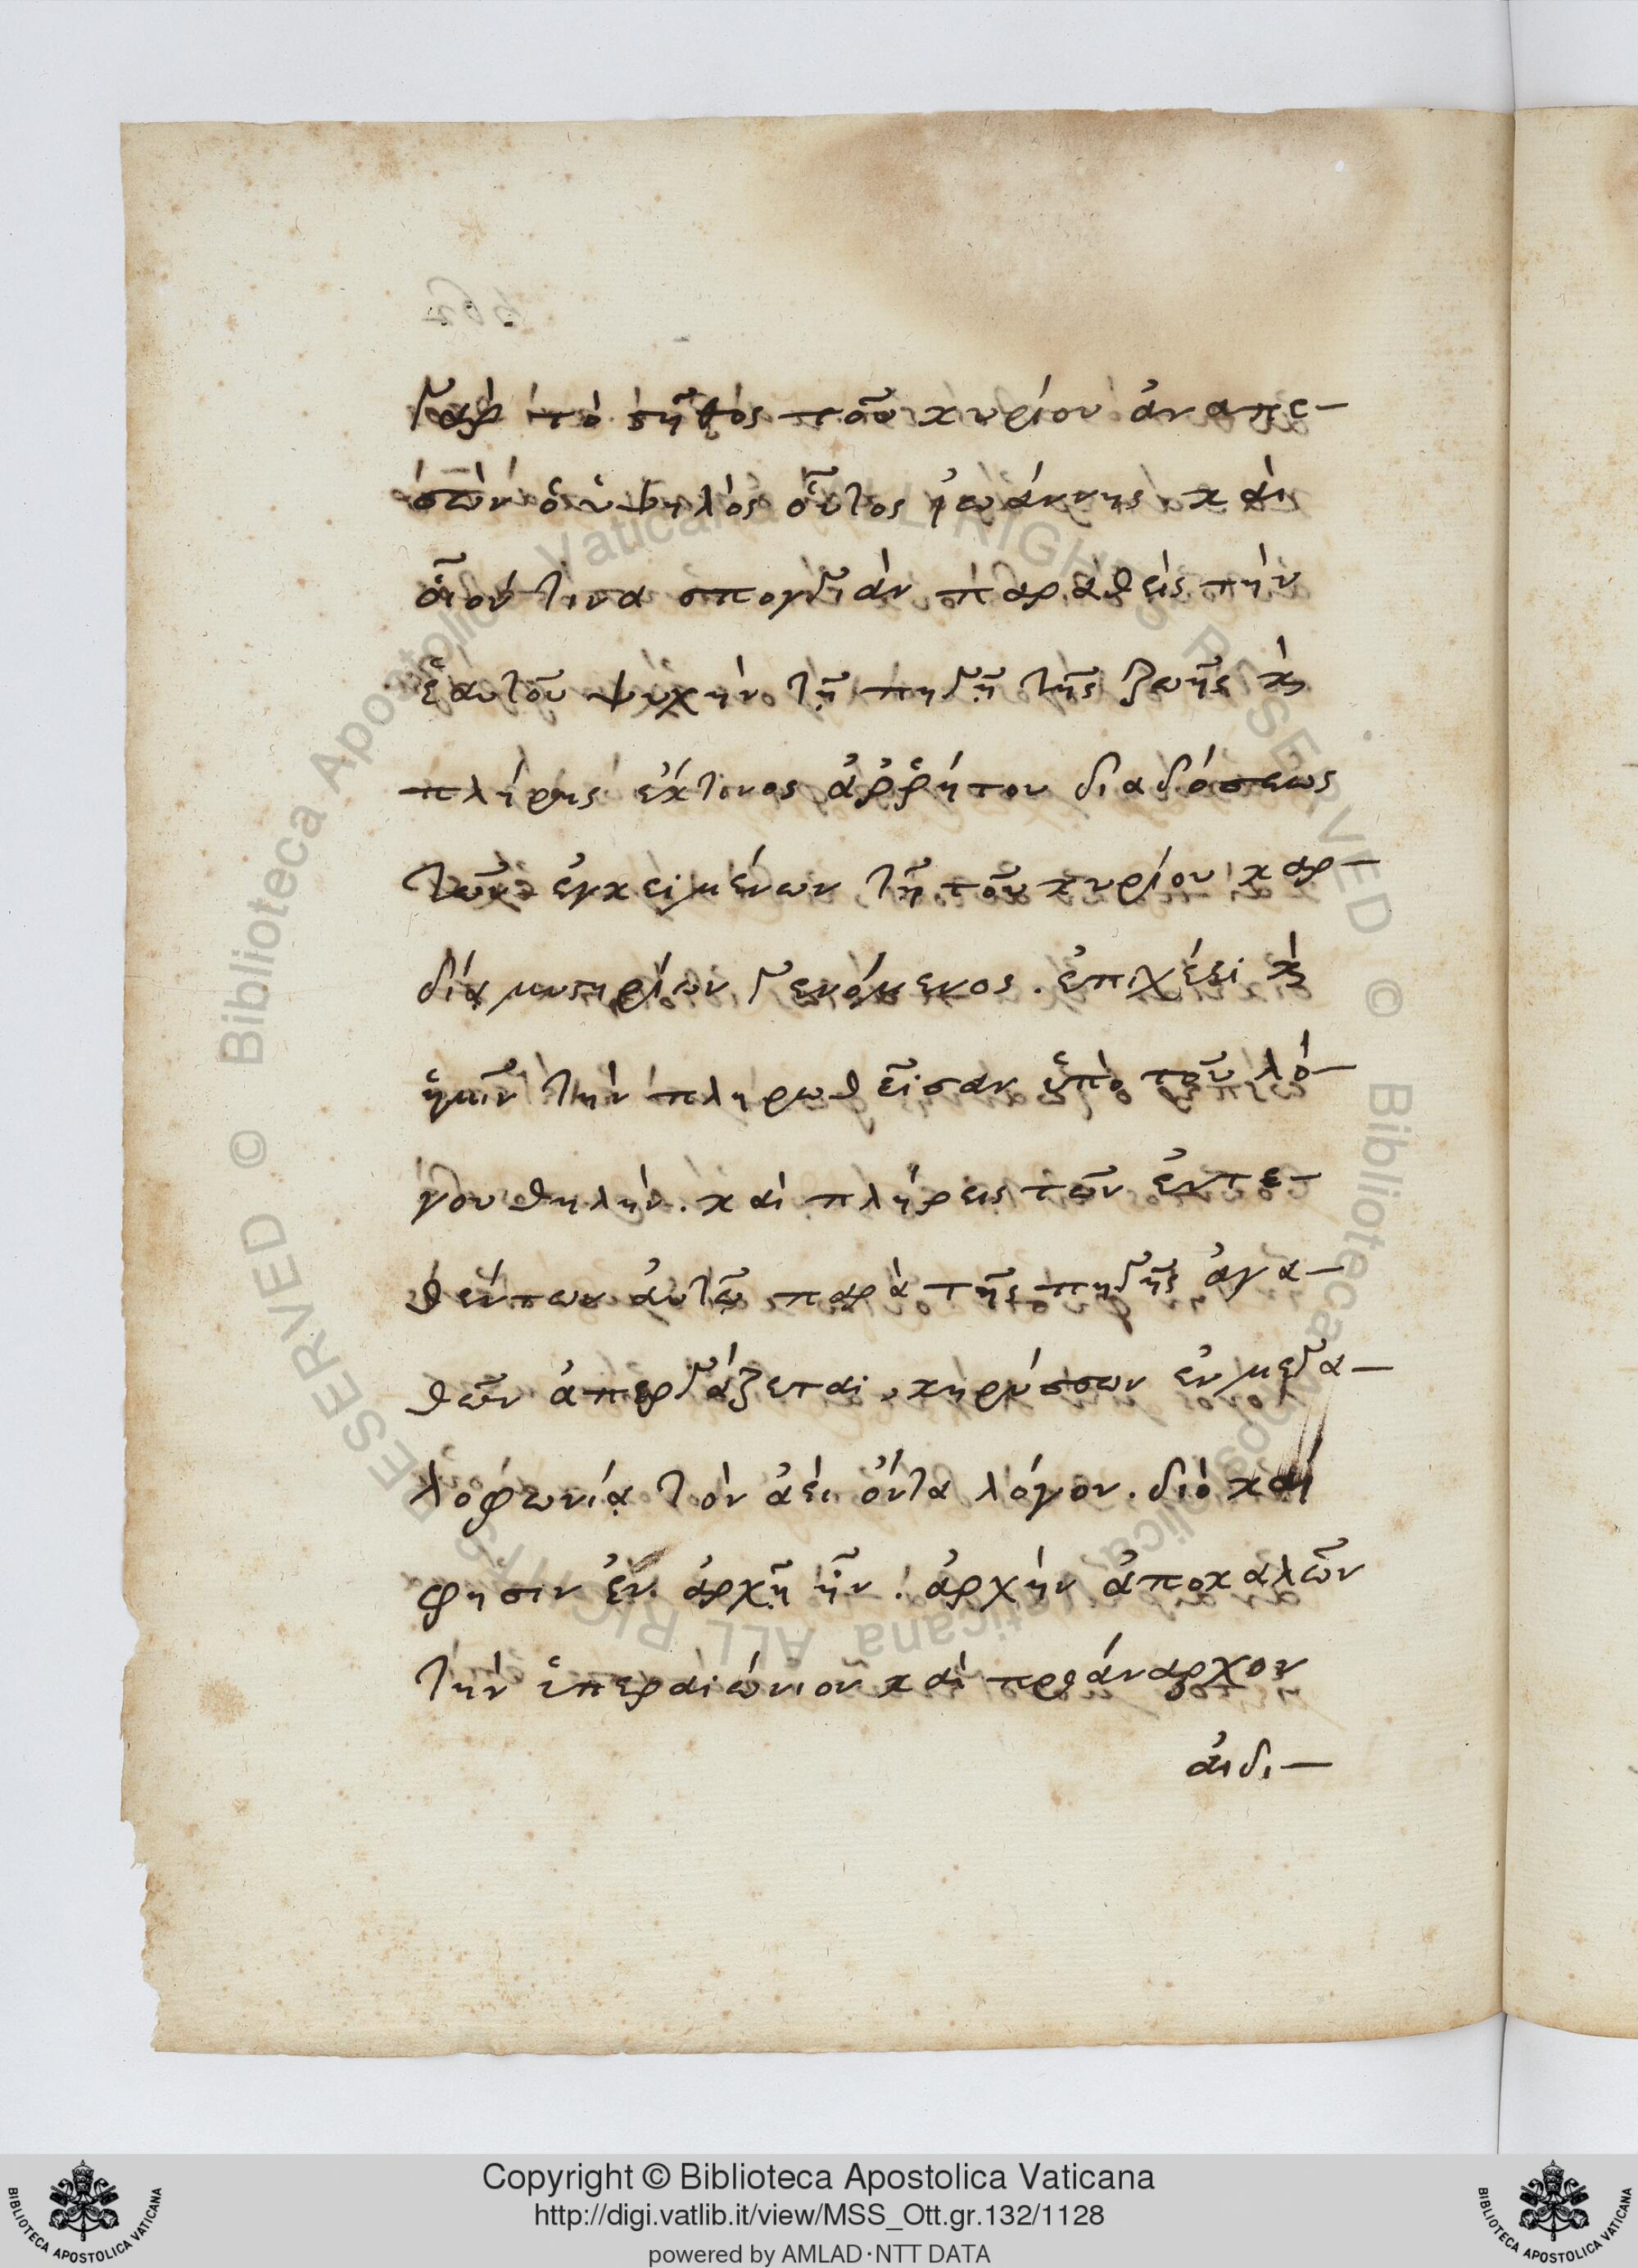 γὰρ τὸ στῆθος τοῦ κυρίου ἀναπε-
σὼν ὁ ὑψηλὸς οὗτος ἰωάννης καὶ
οἷον τινα σπογγιὰν παραθεὶς τὴν
ἑαυτοῦ ψυχὴν τῇ πηγῇ τῆς ζωῆς κὶ
πλήρης ἐκ τινος ἀῤῥήτου διαδόσεως
τῶν ἐγκειμένων τῇ τοῦ κυρίου καρ-
δίᾳ μυστηρίων γενόμενος. ἐπιχέει κὶ
ἡμῖν τὴν πληρωθεῖσαν ὑπὸ τοῦ λό-
γου θηλὴν. καὶ πλήρεις τῶν ἐντε-
θέντων αὐτῷ παρὰ τῆς πηγῆς ἀγα-
θῶν ἀπεργάζεται, κηρύσσων ἐν μεγα-
λοφωνίᾳ τὸν ἀεὶ ὄντα λόγον. διὸ καὶ
φησιν ἐν ἀρχῇ ἦν. ἀρχὴν ἀποκαλῶν
τὴν ὑπεραιώνιον καὶ προάναρχον
ἀιδι-
Copyright © Biblioteca Apostolica Vaticana
http://digi.vatlib.it/view/MSS_Ott.gr.132/1128
powered by AMLAD·NTT DATA
BIBLIOTECA APOSTOLICA VATICANA
BIBLIOTECA APOSTOLICA VATICANA
© Biblioteca Apostolica Vaticana ALL RIGHTS RESERVED © Biblioteca Apostolica Vaticana ALL RIGHTS RESERVED